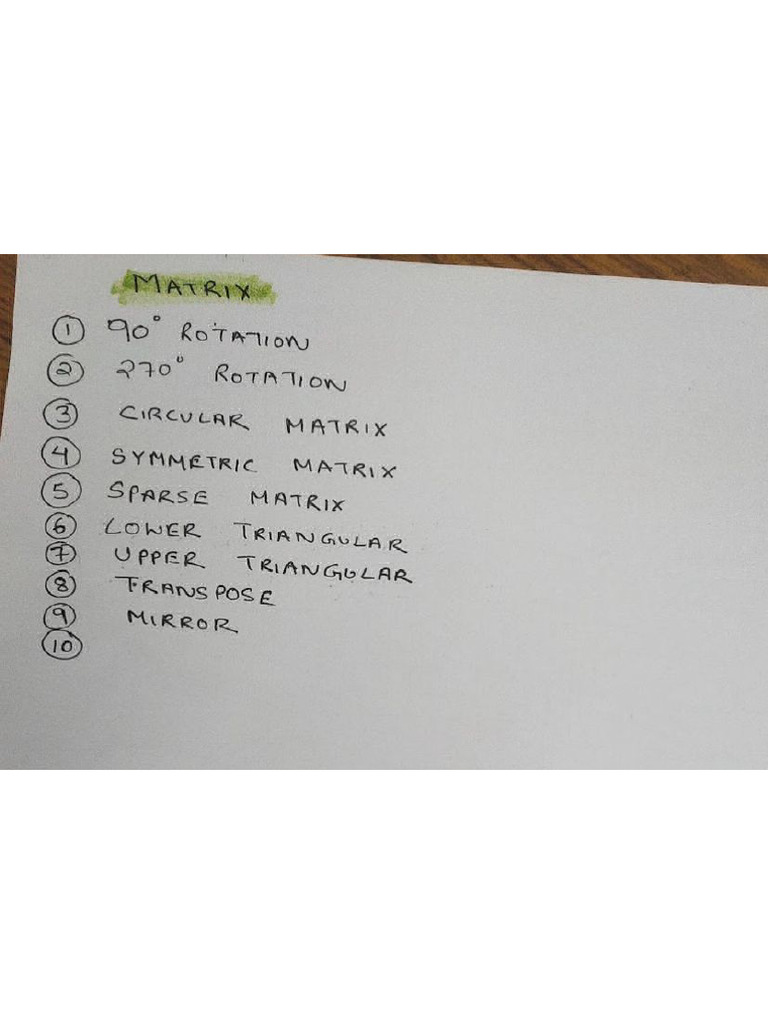 MATRIX
1 90° ROTATION
2 270° ROTATION
3 CIRCULAR MATRIX
4 SYMMETRIC MATRIX
5 SPARSE MATRIX
6 LOWER TRIANGULAR
7 UPPER TRIANGULAR
8 TRANSPOSE
9 MIRROR
10